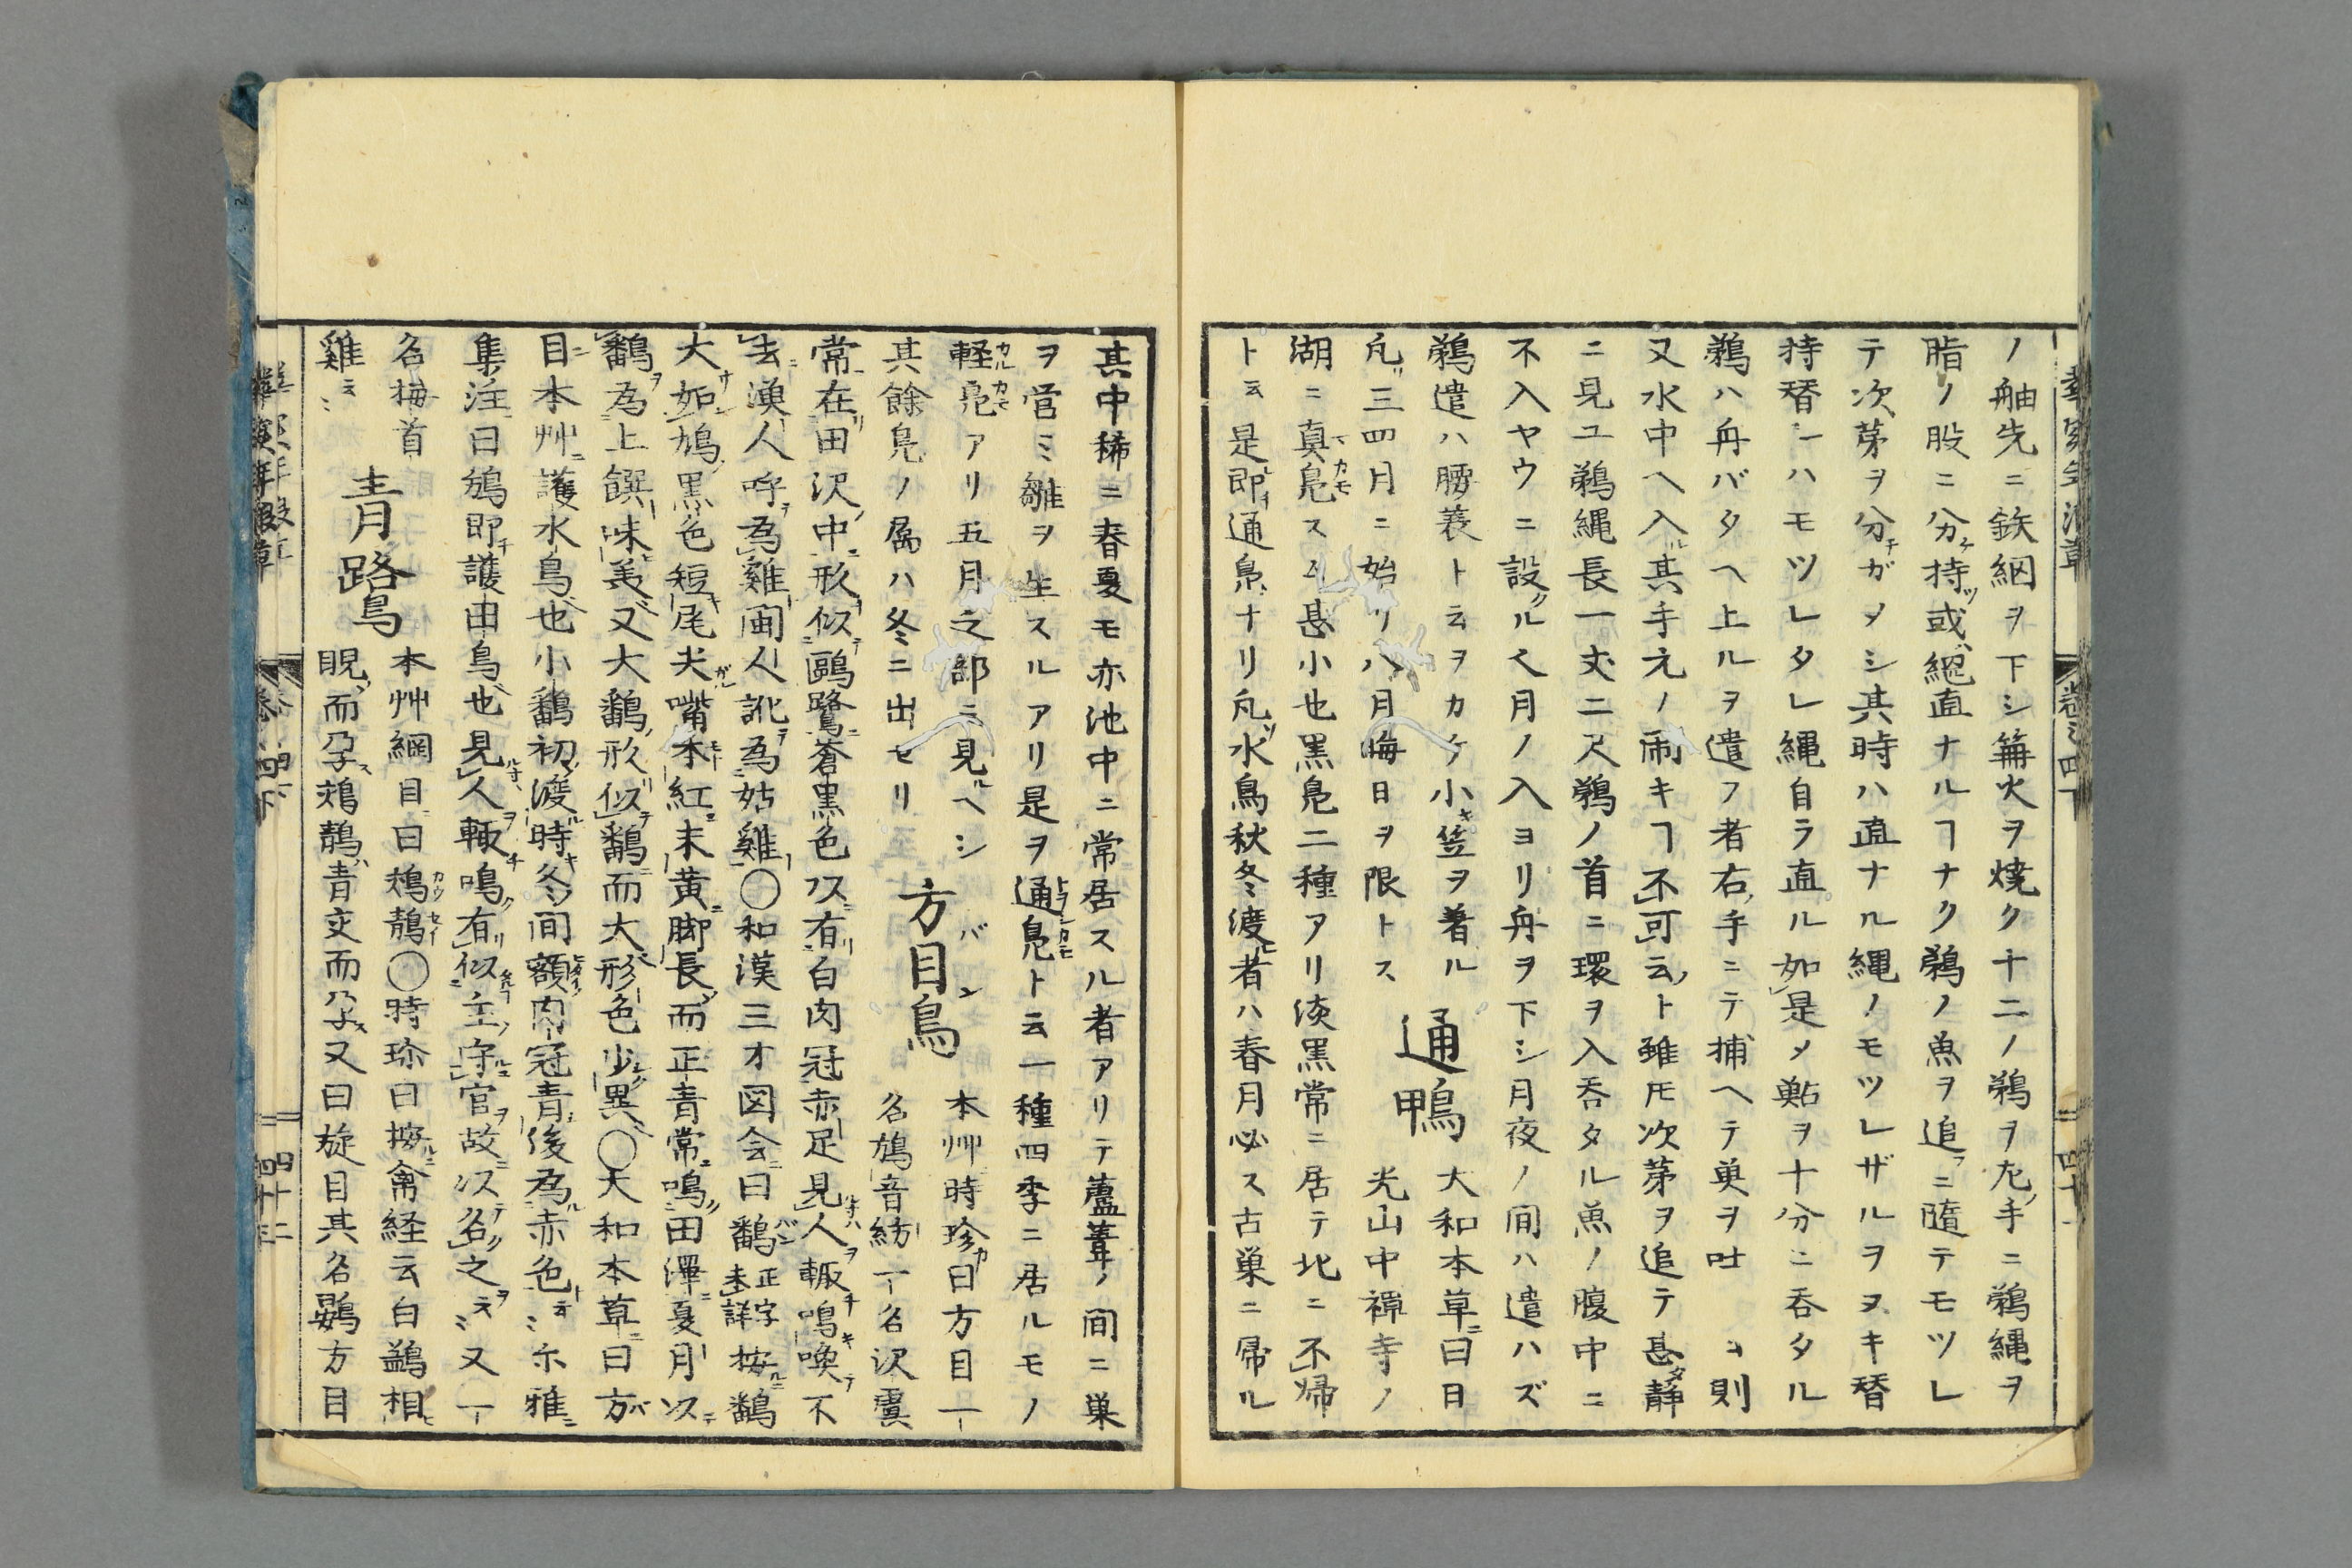 ノ舳先ニ鉄綱ヲ下シ篝火ヲ燒ク十二ノ鵜ヲ左ノ手ニ鵜縄ヲ
脂ノ股ニ分ケ持ツ或ハ縄直ナルヿナク鵜ノ魚ヲ追フニ隨テモツレ
テ次㐧ヲ分チガメシ其時ハ直ナル縄ノモツレザルヲヌキ替
持替レハモツレタレ縄自ラ直ル如是メ鮎ヲ十分ニ呑タル
鵜ハ舟バタヘ上ルヲ遣フ者右ノ手ニテ捕ヘテ奠ヲ吐
又水中ヘ入ル其手元ノ閙キヿ不可云ト雖モ次㐧ヲ追テ甚タ静
ニ見ユ鵜縄長一丈二尺鵜ノ首ニ環ヲ入呑タル魚ノ腹中ニ
不入ヤウニ設クル也月ノ入ヨリ舟ヲ下シ月夜ノ間ハ遣ハズ
鵜遣ハ腰蓑ト云ヲカケ小キ笠ヲ着ル　通鴨　大和本草ニ曰日
光山中禅寺ノ
凡三四月ニ始リ八月晦日ヲ限トス
湖ニ真鳬ス又甚小也黒鳬二種アリ淡黒常ニ居テ北ニ不帰
ト云是即通鳬ナリ凡ソ水鳥秋冬渡ル者ハ春月必ス古巣ニ帰ル
其中稀ニ春夏モ亦池中ニ常居スル者アリテ蘆葦ノ間ニ巣
ヲ営ミ雛ヲ生スルアリ是ヲ通鳬ト云一種四季ニ居ルモノ
軽鳬アリ五月之部ニ見ルヘシ　方目鳥　本艸時珍カ曰方目一
其餘鳬ノ属ハ冬ニ出セリ　名鴋音紡一名沢虞
常在リ田沢ノ中ニ形似テ鷗鷺ニ蒼黒色ヌ有リ白肉冠赤足見人輙鳴喚不
去漁人呼為雞閩人訛為姑雞〇和漢三才図会曰鷭正字未詳按鷭
大如鳩黒色短尾尖嘴本紅末黄脚長而正青常鳴田澤夏月以
鷭為上饌味美又大鷭形似鷭而大形色少異〇大和本草曰方
目ニ本艸護水鳥也小鷭初渡ル時冬間額肉冠青後為赤色云云尓雅
集注曰鴋即護田鳥也見人輙鳴有似主守官故以名之云云又一
名梅首雞云云　青路鳥　本艸綱目曰鵁鶄〇時珍曰按禽経云白鷁相
睨而孕鵁鶄青交而孕又曰旋目其名鷃方目
巻之四下
四十二